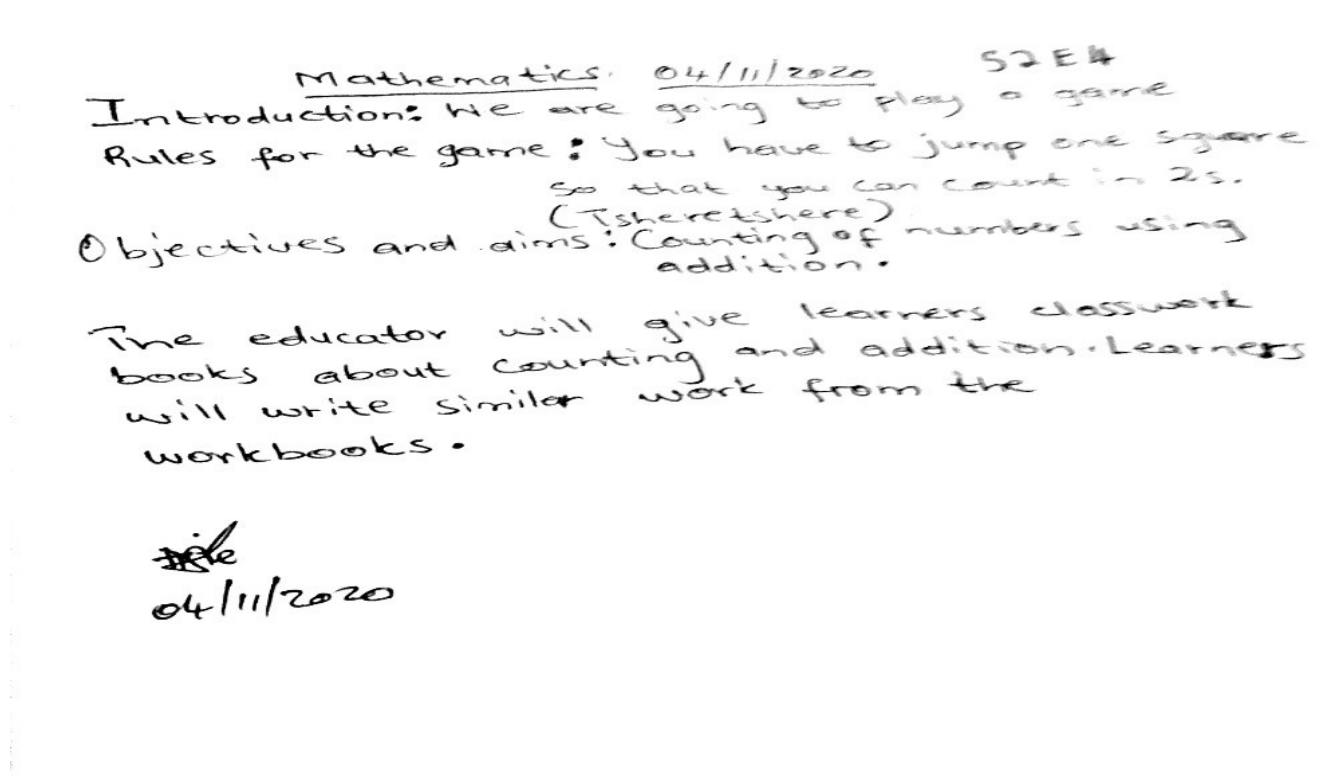 S2E4
Mathematics. 04/11/2020
Introduction: We are going to play a game
Rules for the game: You have to jump one square
so that you can count in 2s.
(Tsheretshere)
Objectives and aims: Counting of numbers using
addition.
The educator will give learners classwork
books about counting and addition. Learners
will write similar work from the
workbooks.
04/11/2020